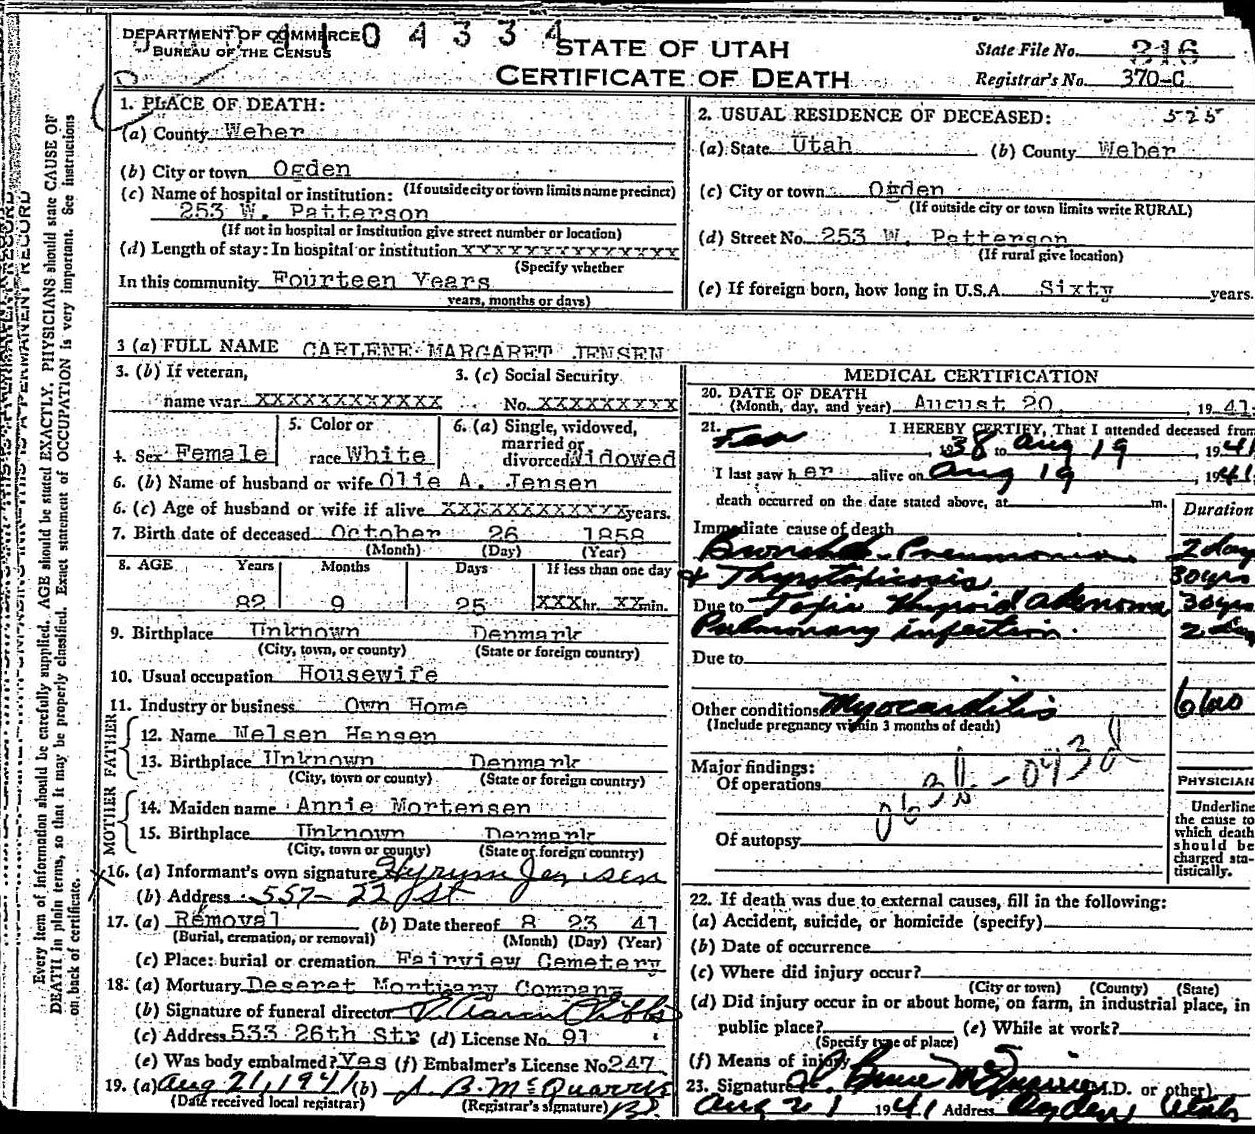 DEPARTMENT OF COMMERCE
BUREAU OF THE CENSUS
04334
STATE OF UTAH
CERTIFICATE OF DEATH
State File No. 316
Registrar's No. 370-C
1. PLACE OF DEATH:
(a) County Weber
(b) City or town Ogden
(If outside city or town limits name precinct)
(c) Name of hospital or institution:
253 W. Patterson
(If not in hospital or institution give street number or location)
(d) Length of stay: In hospital or institution xxxxxxxxxxxxxx
(Specify whether
In this community Fourteen Years
years, months or days)
2. USUAL RESIDENCE OF DECEASED: 525
(a) State Utah (b) County Weber
(c) City or town Ogden
(If outside city or town limits write RURAL)
(d) Street No. 253 W. Patterson
(If rural give location)
(e) If foreign born, how long in U.S.A. Sixty years.
3 (a) FULL NAME CARLENE MARGARET JENSEN
3. (b) If veteran,
name war XXXXXXXXXXXX
3. (c) Social Security
No. XXXXXXXXX
4. Sex Female
5. Color or
race White
6. (a) Single, widowed,
married or
divorced Widowed
6. (b) Name of husband or wife Olie A. Jensen
6. (c) Age of husband or wife if alive XXXXXXXXXXXX years.
7. Birth date of deceased October 26 1858
(Month) (Day) (Year)
8. AGE Years Months Days If less than one day
82 9 25 XXX hr. XX min.
9. Birthplace Unknown Denmark
(City, town, or county) (State or foreign country)
10. Usual occupation Housewife
11. Industry or business Own Home
FATHER
12. Name Nelsen Hansen
13. Birthplace Unknown Denmark
(City, town or county) (State or foreign country)
MOTHER
14. Maiden name Annie Mortensen
15. Birthplace Unknown Denmark
(City, town or county) (State or foreign country)
16. (a) Informant's own signature Hyrum Jensen
(b) Address 557-22 St
17. (a) Removal (b) Date thereof 8 23 41
(Burial, cremation, or removal) (Month) (Day) (Year)
(c) Place: burial or cremation Fairview Cemetery
18. (a) Mortuary Deseret Mortuary Company
(b) Signature of funeral director
(c) Address 533 26th Str (d) License No. 91
(e) Was body embalmed? Yes (f) Embalmer's License No. 247
19. (a) Aug 21, 1941 (b) J. B. McQuarrie
(Date received local registrar) (Registrar's signature)
MEDICAL CERTIFICATION
20. DATE OF DEATH
(Month, day, and year) August 20, 1941.
21. I HEREBY CERTIFY, That I attended deceased from
Feb, 1938 to Aug 19, 1941
I last saw her alive on Aug 19, 1941
death occurred on the date stated above, at m.
Duration
Immediate cause of death
Bronchial Pneumonia 2 day
& Thyrotoxicosis 30 yrs
Due to Toxic Thyroid Adenoma 30 yrs
Pulmonary infection. 2 day
Due to
Other conditions Myocarditis 6 mo
(Include pregnancy within 3 months of death)
Major findings:
Of operations
Of autopsy
PHYSICIAN
Underline
the cause to
which death
should be
charged sta-
tistically.
22. If death was due to external causes, fill in the following:
(a) Accident, suicide, or homicide (specify)
(b) Date of occurrence
(c) Where did injury occur?
(City or town) (County) (State)
(d) Did injury occur in or about home, on farm, in industrial place, in
public place? (e) While at work?
(Specify type of place)
(f) Means of injury
23. Signature Bruce McQuarrie (M.D. or other)
Aug 21 1941 Address Ogden, Utah
Every item of information should be carefully supplied. AGE should be stated EXACTLY. PHYSICIANS should state CAUSE OF
DEATH in plain terms, so that it may be properly classified. Exact statement of OCCUPATION is very important. See instructions
on back of certificate.